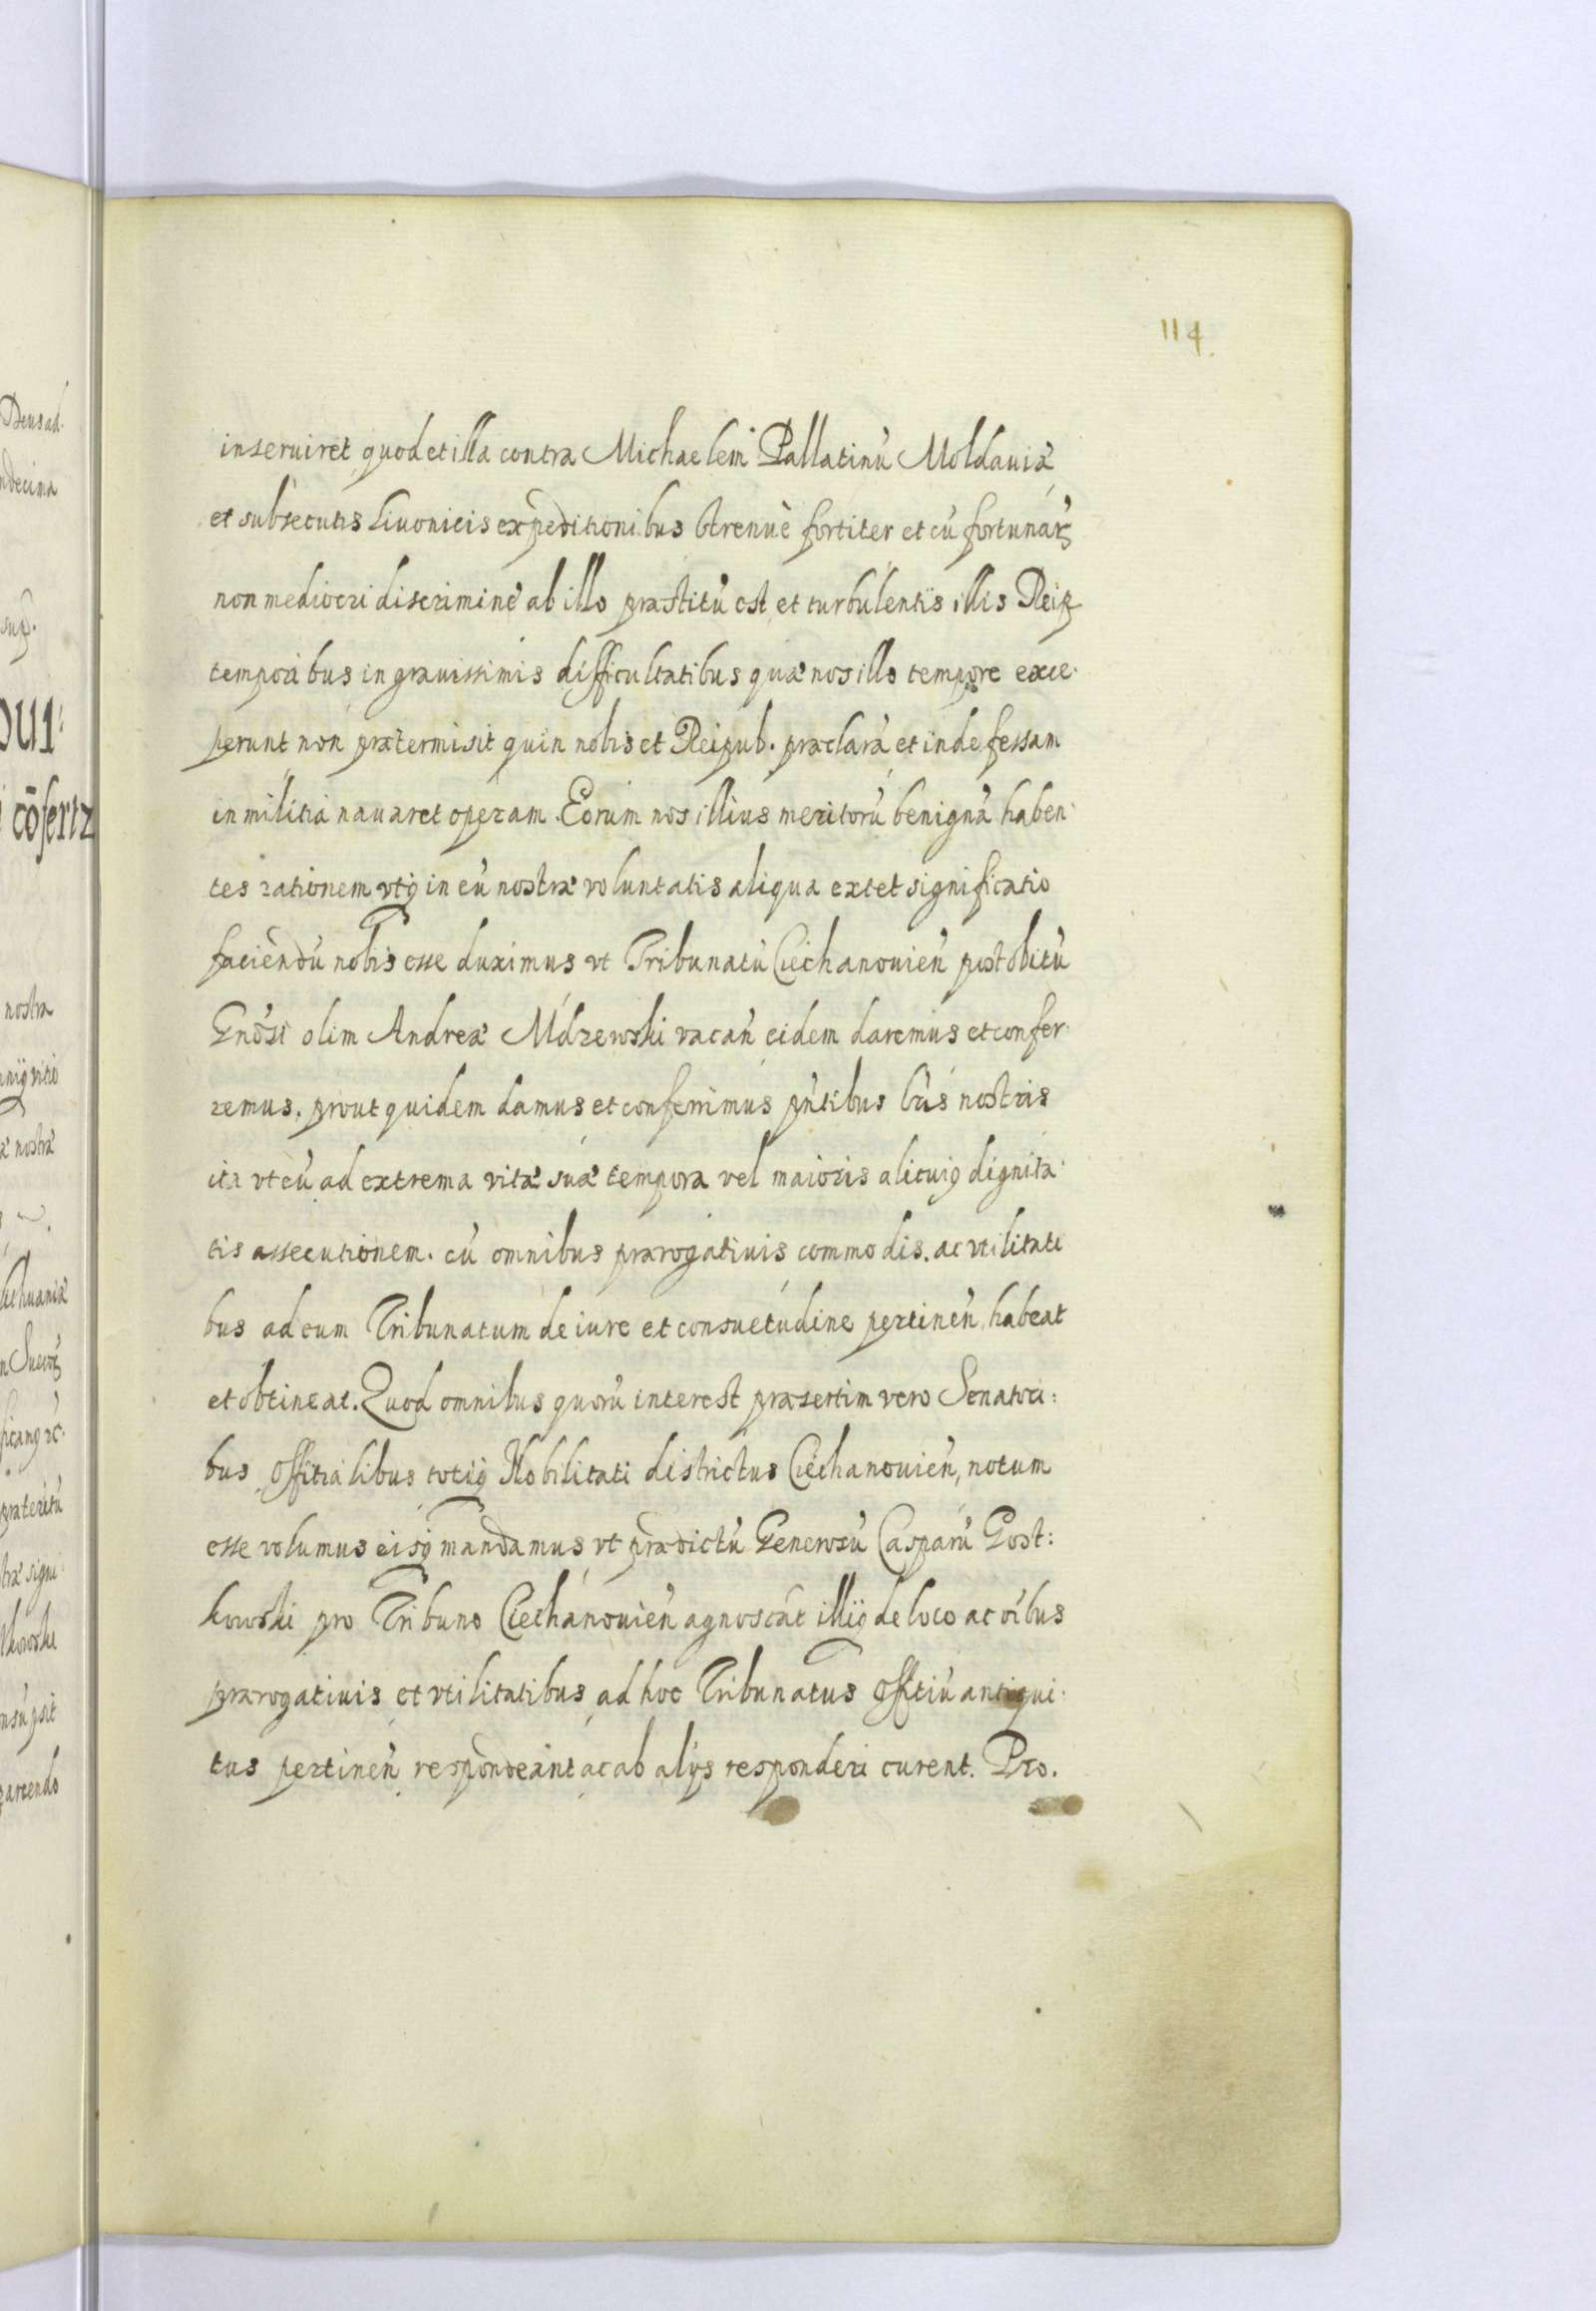 114.
inseruiret quod et illa contra Michaelem Pallatinū Moldauiæ
et subsecutis Liuonicis expeditionibus strenuè fortiter et cū fortunarꝫ
non mediocri discrimine ab illo præstitū est et turbulentis illis Reip
temporibus in grauissimis difficultatibus quæ nos illo tempore exce-
perunt non prætermisit quin nobis et Reipub. præclarā et indefessam
in militia nauaret operam. Eorum nos illius meritorū benignā haben-
tes rationem vtq; in eū nostræ voluntatis aliqua extet significatio
faciendū nobis esse duximus vt Tribunatū Ciechanouień post obitū
Gnōsi olim Andreæ Mdzewski vacań eidem daremus et confer-
remus. prout quidem damus et conferrimus pńtibus lrīs nostris
ita vt eū ad extrema vitæ suæ tempora vel maioris alicui9 dignita-
tis assecutionem. cū omnibus prærogatiuis commodis. ac vtilitati
bus ad eum Tribunatum de iure et consuetudine pertineń habeat
et obtineat. Quod omnibus quorū interest præsertim vero Senatori:
bus Offitialibus totiq; Nobilitati districtus Ciechanouień, notum
esse volumus eisq; mandamus vt prædictū Generosū Casparū Gost:
kowski pro Tribuno Ciechanouień agnoscāt illiq; de loco ac oībus
prærogatiuis et vtilitatibus ad hoc Tribunatus Offitiū antiqui-
tus pertineń respondeant ac ab alijs responderi curent. Pro.
Deus ad-
ndecima
sup.
OUI:
cōfertz
nostra
æ nostræ
Suecorꝫ
præteritū
træ signi-
kowski